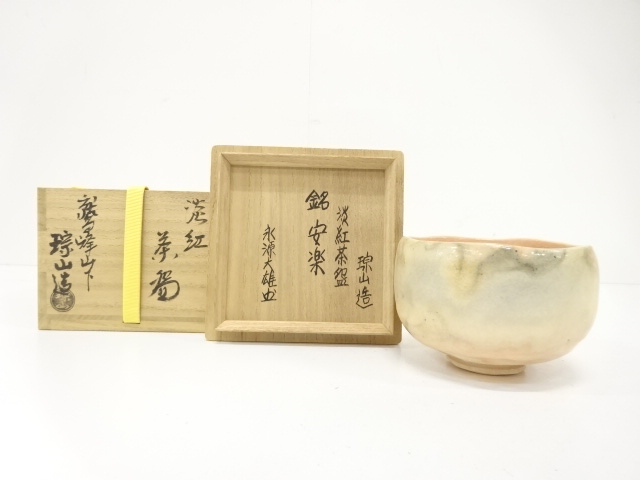 淡紅
茶碗
鷹峰山下
琮山造
琮山造
淡紅茶盌
銘 安楽
永源大雄